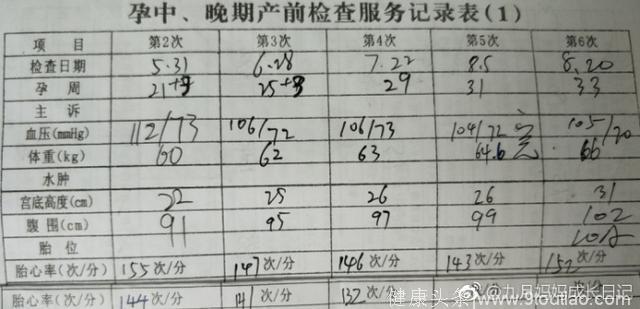 孕中、晚期产前检查服务记录表(1)
项 目 第2次 第3次 第4次 第5次 第6次
检查日期 5.31 6.28 7.22 8.5 8.20
孕 周 21 25 29 31 33
主 诉
血压(mmHg) 112/73 106/72 106/73 104/72 105/70
体重(kg) 60 62 63 64.6 66
水肿
宫底高度(cm) 22 25 26 26 31
腹 围(cm) 91 95 97 99 102
胎 位
胎心率(次/分) 155次/分 147次/分 146次/分 143次/分 152次/分
胎心率(次/分) 144次/分 141次/分 132次/分
健康头条 www.9ioutiao.com
@九月妈妈成长日记